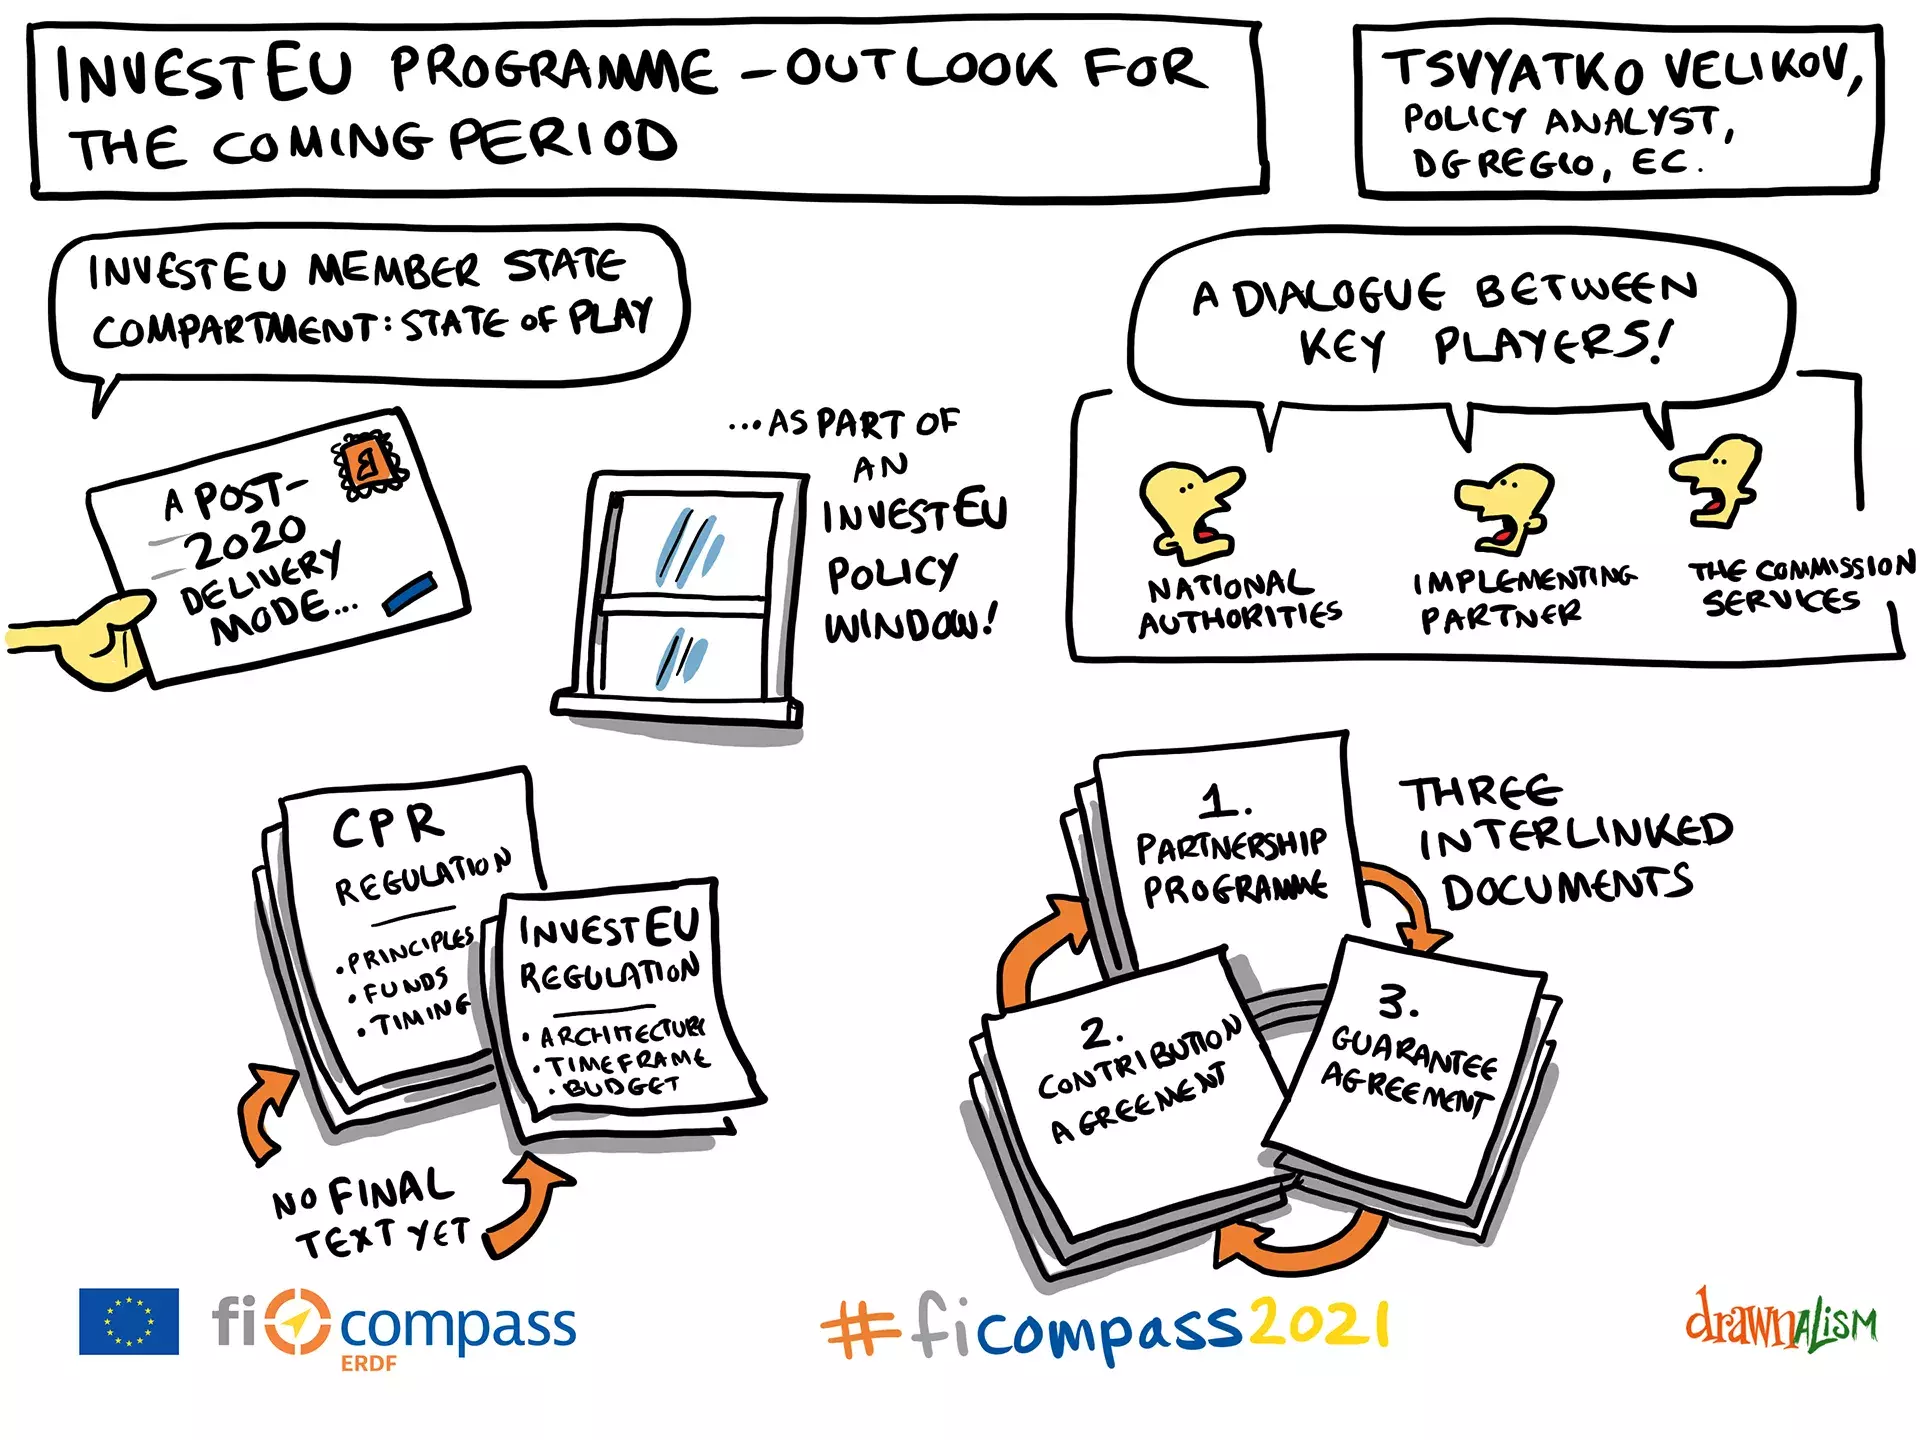 INVESTEU PROGRAMME – OUTLOOK FOR
THE COMING PERIOD
TSVYATKO VELIKOV,
POLICY ANALYST,
DG REGIO, EC.
INVESTEU MEMBER STATE
COMPARTMENT: STATE OF PLAY
A POST-
2020
DELIVERY
MODE...
B
...AS PART OF
AN
INVESTEU
POLICY
WINDOW!
A DIALOGUE BETWEEN
KEY PLAYERS!
NATIONAL
AUTHORITIES
IMPLEMENTING
PARTNER
THE COMMISSION
SERVICES
CPR
REGULATION
• PRINCIPLES
• FUNDS
• TIMING
INVESTEU
REGULATION
• ARCHITECTURE
• TIMEFRAME
• BUDGET
NO FINAL
TEXT YET
THREE
INTERLINKED
DOCUMENTS
1.
PARTNERSHIP
PROGRAMME
2.
CONTRIBUTION
AGREEMENT
3.
GUARANTEE
AGREEMENT
fi compass
ERDF
#ficompass2021
drawnalism